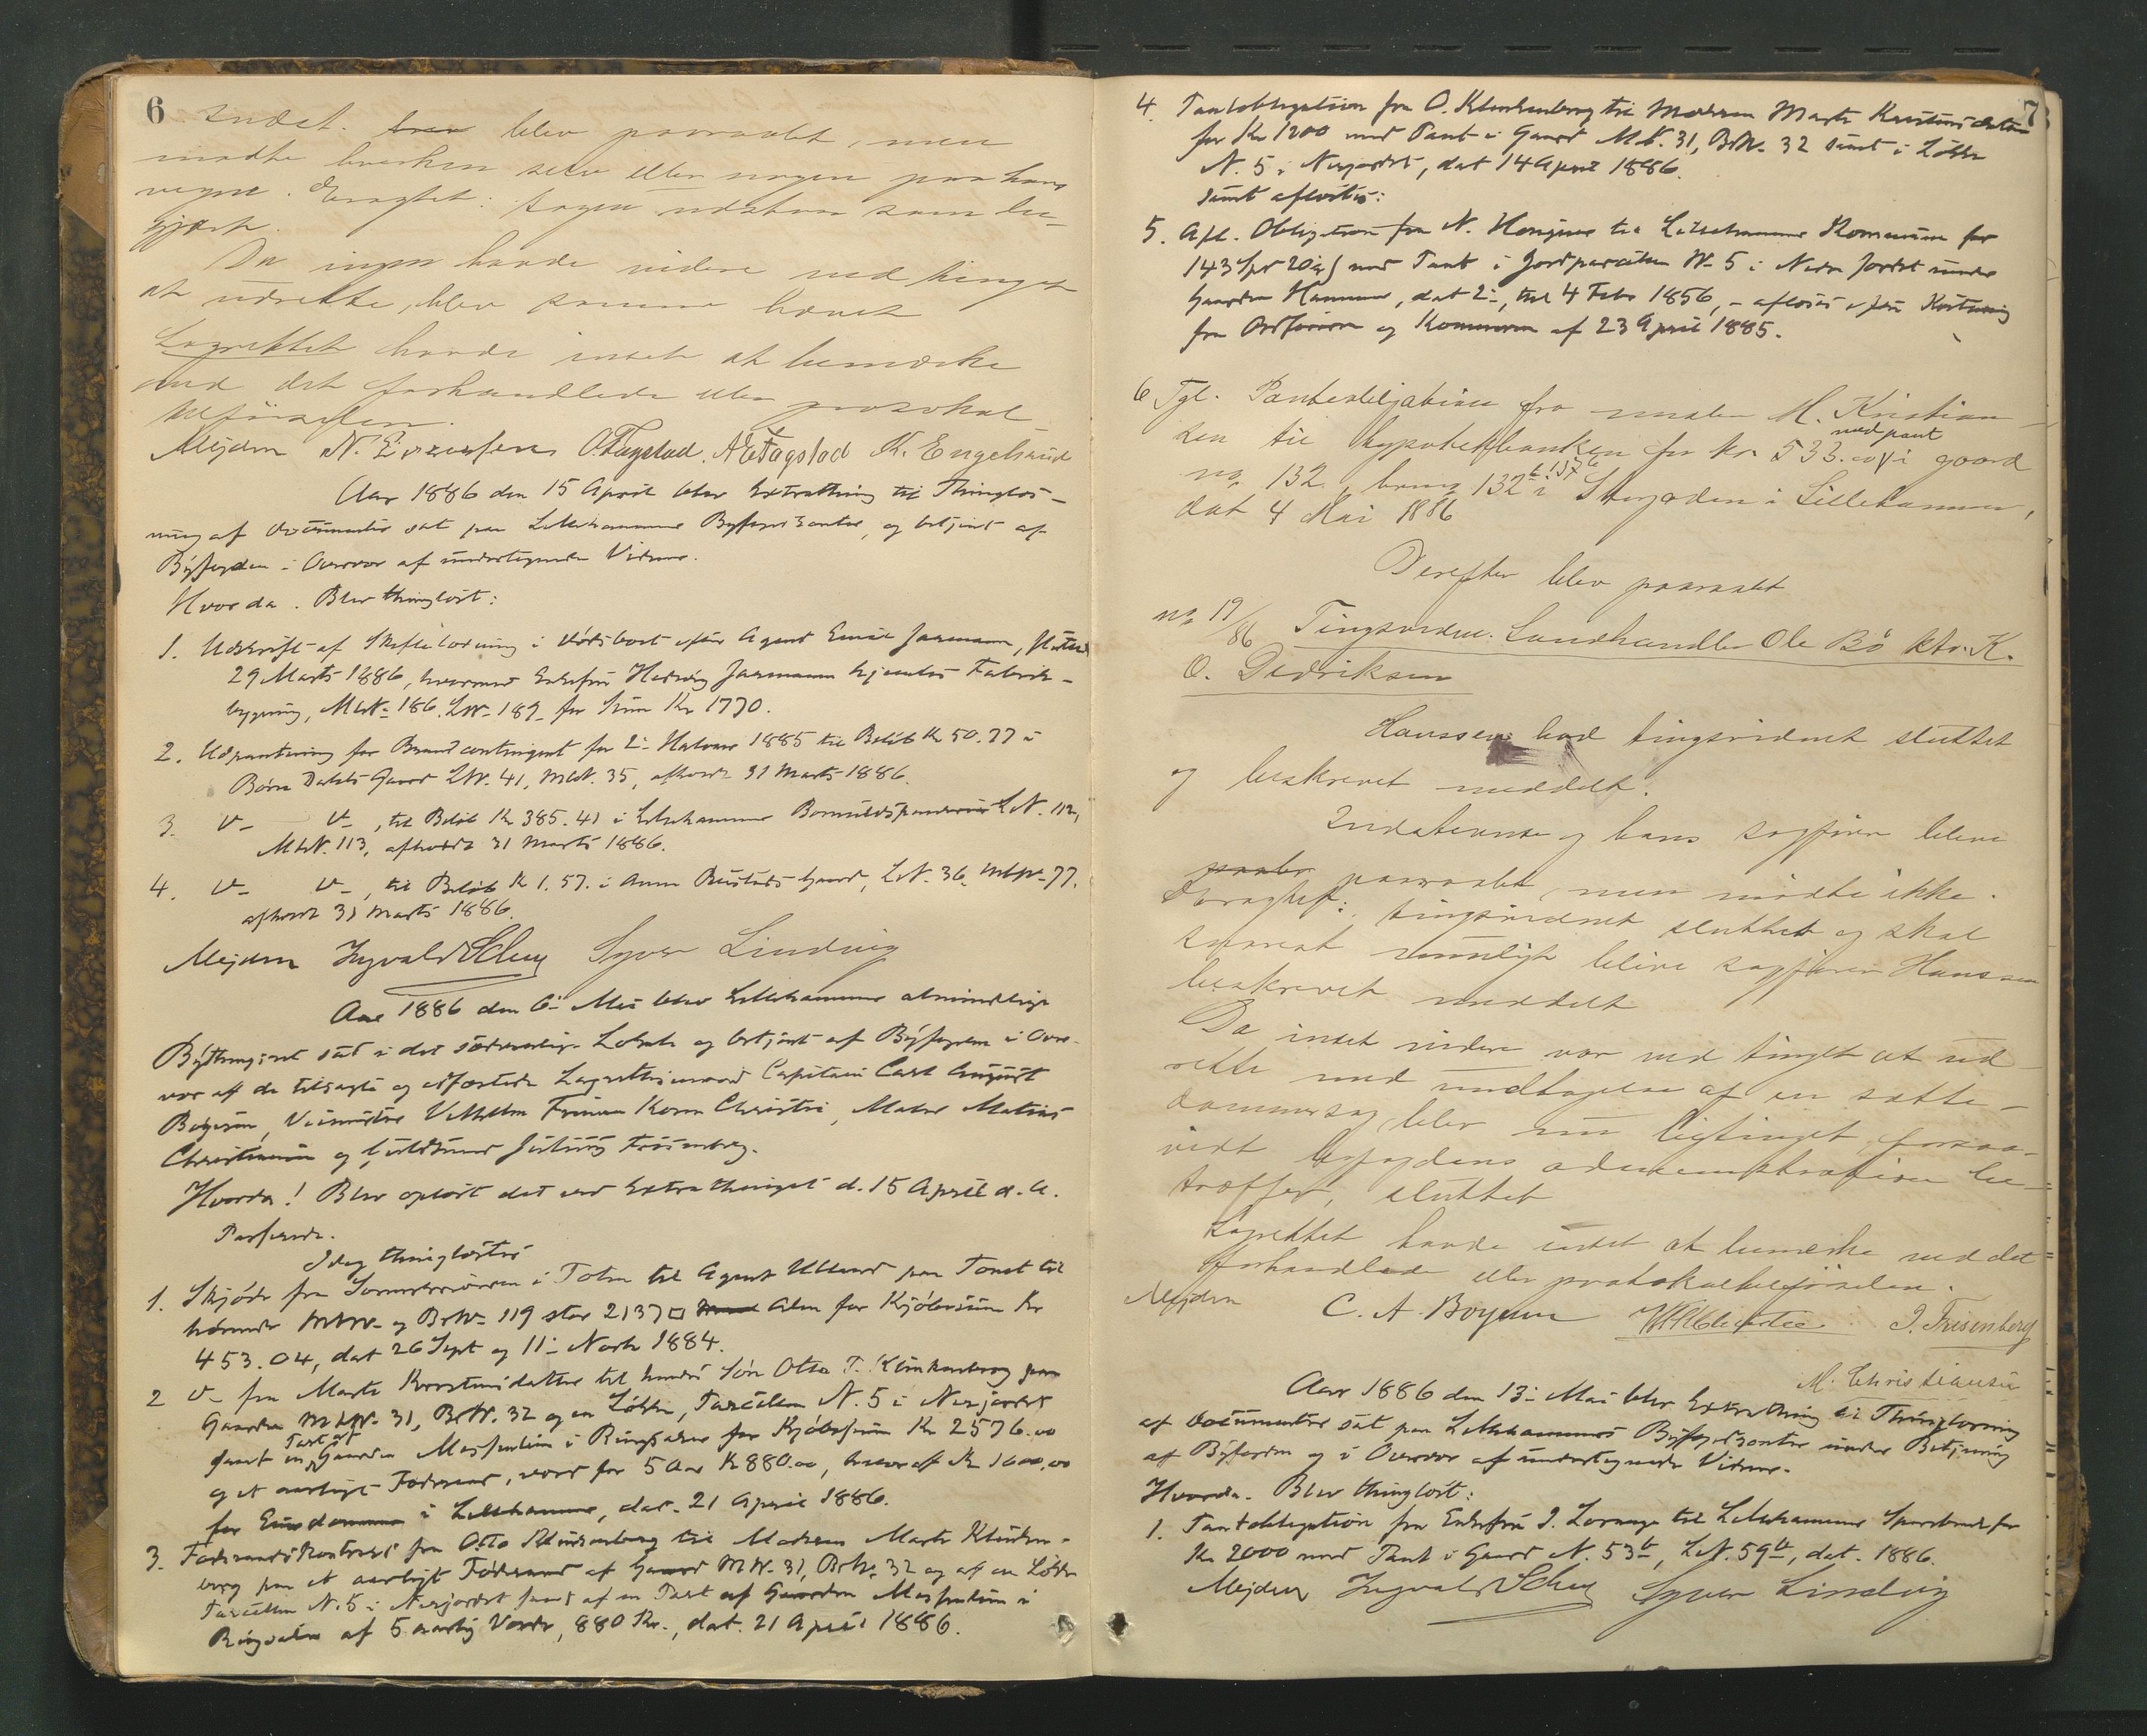 6
indst. blev paaraabt, men
mødte hverken selv eller nogen paa hans
vegne. Eragtet: sagen udstaar som be-
gjært.
Da ingen havde videre ved tinget
at udrette, blev samme hævet
Lagrettet havde intet at bemærke
ved det forhandlede eller protokol-
tilførselen.
Mejdem N. O. Fagstad. A Fagstad K. Engelsrud
Aar 1886 den 15 April blev Extrathing til Thinglæs-
ning af Documenter sat paa Lillehammer Byfogedcontor, og betjent af
Byfogden i Overvær af undertegnede Vidner.
Hvorda. Blev thinglæst:
1. Udskrift af Skiftelodning i Dødsboet efter Agent Emil Jarmann, sluttet
29 Marts 1886, hvorved Enkefru Hedvig Jarmann hjemles Fabrik-
bygning, MtN. 186. LN. 189 for Sum Kr 1770.
2. Udpantning for Brandcontingent for 2. Halvaar 1885 til Beløb Kr 50.77 i
Børre Dahls Gaard LN. 41, MtN. 35, afholdt 31 Marts 1886.
3. v- v-, til Beløb Kr 385.41 i Lillehammer Bomuldspinderie LN. 112,
MtN. 113, afholdt 31 Marts 1886.
4. v- v-, til Beløb Kr 1.57. i Anne Bustads Gaard, LN. 36, MtN. 77.
afholdt 31 Marts 1886.
Mejdem Ingvald Schey Syver Lindvig
Aar 1886 den 6. Mai blev Lillehammer almindelige
Bythingsret sat i det sædvanlige Lokale og betjent af Byfogden i Over-
vær af de tilsagte og edfæstede Lagrettesmænd Capitain Carl August
Boyesen, Veimester Vilhelm Frimann Koren Christie, Maler Matias
Christiansen og Guldsmed Julius Frisenberg.
Hvorda! Blev oplæst det ved Extrathinget d. 15 April d. A.
Passerede.
Idag thinglæstes
1. Skjøde fra i Toten til Agent Ulland paa Tomt til-
hørende MtN. og BrN. 119 stor 2137 □ Alen for Kjøbesum Kr
453.04, dat 26 Sept og 11. Novbr 1884.
2 v- fra Marte Kerstinsdatter til hendes Søn Otto T. Klinkenberg paa
Gaarden MtN. 31, BrN. 32 og en Løkke, Parcellen N. 5 i Nerjordet
samt en Part af Gaarden Mesfeltin i Ringsaker for Kjøbesum Kr 2576.00
og et aarligt Føderaad, værd for 5 Aar Kr 880.00, hvoraf Kr 1600.00
for Eiendommen i Lillehammer, dat. 21 April 1886.
3. Føderaadskontrakt fra Otto Klinkenberg til Moderen Marte Klinken-
berg paa et aarligt Føderaad af Gaard MtN. 31, BrN. 32 og af en Løkke
Parcellen N. 5 i Nerjordet samt af en Part af Gaarden Mesfeltin i
Ringsaker af 5 aarlig Værdi, 880 Kr., dat. 21 April 1886.
7
4. Pantobligation fra O. Klinkenberg til Moderen Marte Kerstinsdatter
for Kr 1200 med Pant i Gaard MtN. 31, BrN. 32 samt i Løkke
N. 5 i Nerjordet, dat 14 April 1886.
samt aflæstes:
5. Afl. Obligation fra N. til Lillehammer Kommune for
143 Spd 20 sk med Pant i Jordparcellen N. 5 i Nedre Jordet under
Gaarden Hammer, dat 2., thl 4 Febr 1856, - aflæses efter Kvittering
fra Ordføreren og Kommunen af 23 April 1885.
6 Tgl. Panteobligation fra maler M. Kristian-
sen til hypotekbanken for kr. 533.00 med pant i gaard
no. 132, brno 132 b i Storgaden i Lillehammer,
dat 4 Mai 1886
Derefter blev paaraabt
no 19/86 Tingsvidne. Landhandler Ole Bø ktr. K.
O. Dedriksen
Hanssen bad tingsvidnet sluttet
og beskrevet meddelt.
Indstevnte og hans sagfører bleve
paaraabt, men mødte ikke.
Eragtet: tingsvidnet sluttet og skal
snarest muligt blive sagfører Hanssen
beskrevet meddelt
Da intet videre var ved tinget at ud-
rette med undtagelse af en sætte-
dommersag, blev nu bytinget, forsaa-
vidt byfogdens administration be-
træffer, sluttet
Lagrettet havde intet at bemærke ved det
forhandlede eller protokoltilførselen.
Mejdem C. A. Boyesen WFKChristie J. Frisenberg
M. Christiansen
Aar 1886 den 13. Mai blev Extrathing til Thinglæsning
af Documenter sat paa Lillehammers Byfogedcontor under Betjening
af Byfogden og i Overvær af undertegnede Vidner.
Hvorda. Blev thinglæst:
1. Pantobligation fra Enkefru I. Lorange til Lillehammer Sparebank for
Kr. 2000 med Pant i Gaard N. 53b, LN. 59b, dat. 1886.
Mejdem Ingvald Schey Syver Lindvig